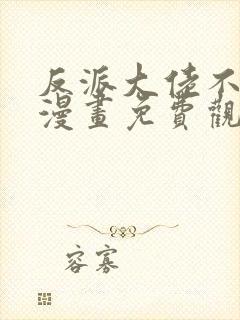 反派大佬不
漫畫免費觀
容寡